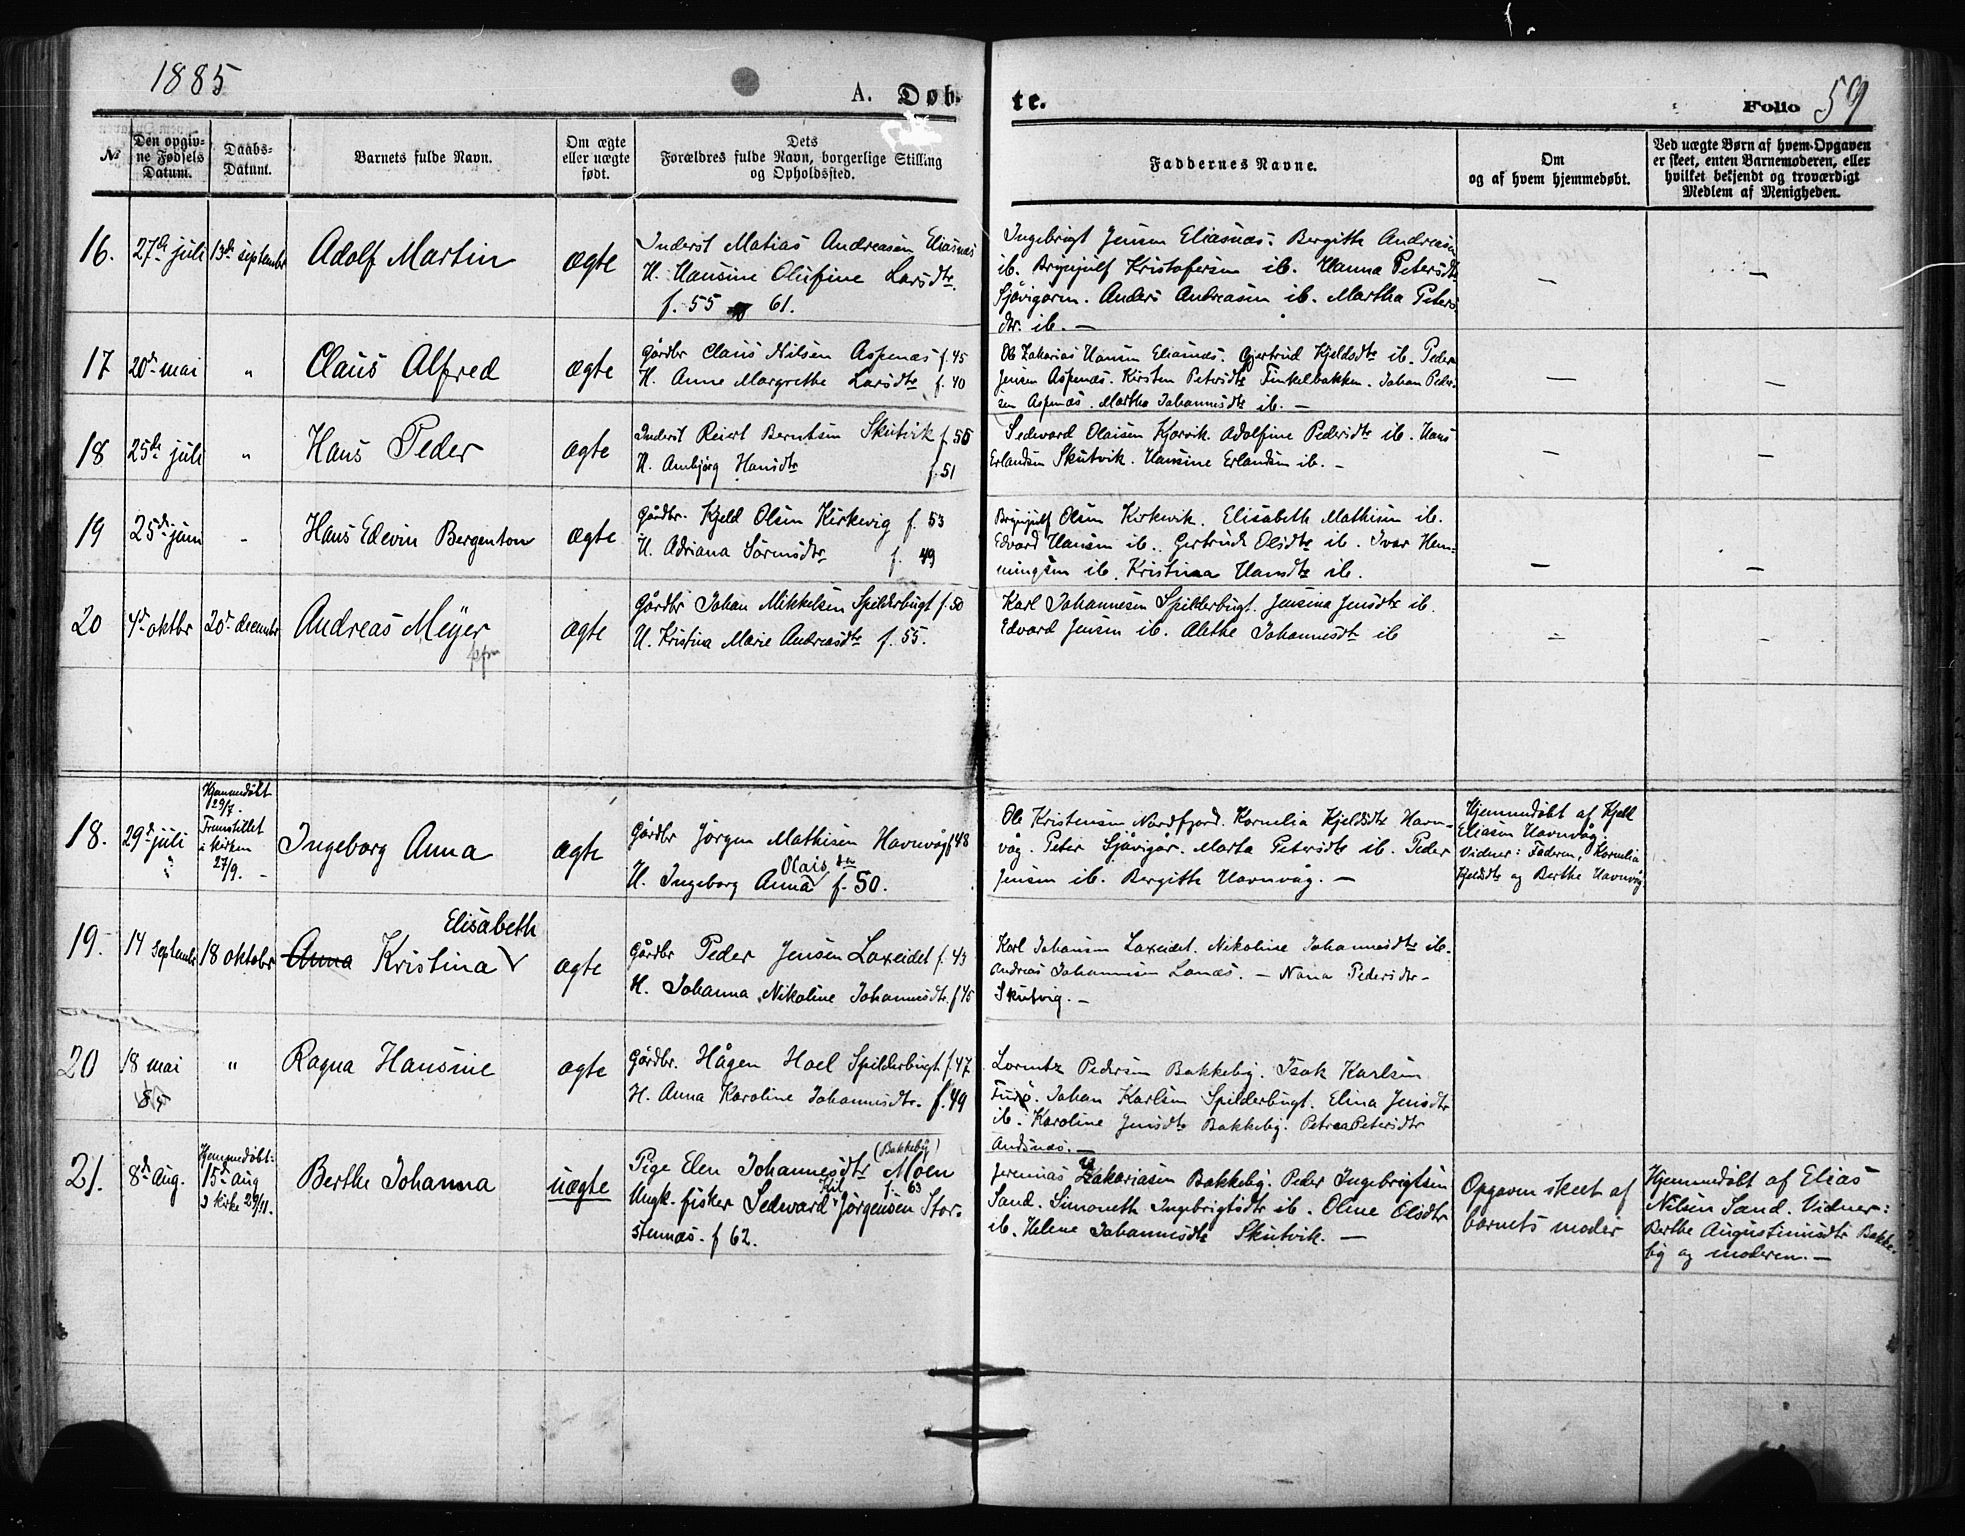 1885
A. Døb-
te.
Folio 59
№
Den opgiv-
ne Fødsels
Datum.
Daabs-
Datum.
Barnets fulde Navn.
Om ægte
eller uægte
født.
Dets
Forældres fulde Navn, borgerlige Stilling
og Opholdssted.
Faddernes Navne.
Om
og af hvem hjemmedøbt.
Ved uægte Børn af hvem Opgaven
er skeet, enten Barnemoderen, eller
hvilket bekjendt og troværdigt
Medlem af Menigheden.
16. 27de juli 13de septembr Adolf Martin ægte
Inderst Matias Andreasen Eliasnæs
H. Hansine Olufine Larsdtr.
f. 55 og 61.
Ingebrigt Jensen Eliasnæs. Bergitte Andreasen
ib. Brynjulf Kristofersen ib. Hanna Petersdtr
Sjåvigøren. Anders Andreasen ib. Martha Peters-
dtr. ib. —
— —
17 20de mai " Claus Alfred ægte
Gårdbr Claus Nilsen Aspenæs f. 45
H. Anne Margrethe Larsdtr f. 40
Ole Zakarias Hansen Eliasnæs. Gjertrud Kjeldsdtr ib. Peder
Jensen Aspenæs. Kirsten Petersdtr Finkelbakken. Johan Peder-
sen Aspenæs. Martha Johannesdtr ib. —
— —
18 25de juli " Hans Peder ægte
Inderst Reiert Berntsen Skutvik f. 56
H. Anbjørg Hansdtr f. 51
Sedevard Olaisen Kjorvik. Adolfine Pedersdtr ib. Hans
Erlandsen Skutvik. Hansine Erlandsen ib. —
— —
19 25de juni " Hans Edevin Bergenton ægte
Gårdbr. Kjeld Olsen Kirkevig f. 53
H. Adriana Sørensdtr f. 49
Brynjulf Olsen Kirkevik. Elisabeth Mathisen ib.
Edvard Hansen ib. Gertrude Olsdtr ib. Ivar Hem-
mingsen ib. Kristina Hansdtr ib.
— —
20 4de oktbr 20de decembr Andreas Meyer ægte
Gårdbr Johan Mikkelsen Spilderbugt f. 50
H. Kristina Marie Andreasdtr f. 55.
Karl Johannesen Spilderbugt. Jensina Jensdtr ib.
Edvard Jensen ib. Alethe Johannesdtr ib
— —
18. 29de juli
Hjemmedøbt
29/7.
Fremstillet
i kirken
27/9. —
Ingeborg Anna ægte
Gårdbr Jørgen Mathisen Havnvåg f 48
H. Ingeborg Anna Olaisdtr f. 50.
Ole Kristensen Nordfjord. Kornelia Kjeldsdtr Havn-
våg. Peter Sjåvigør. Marta Petersdtr ib. Peder
Jensen ib. Bergitte Havnvåg. —
Hjemmedøbt af Kjell
Eliasen Havnvåg.
Vidner: Faderen, Kornelia
Kjeldsdtr og Berthe Havnvåg
19. 14 septembr 18 oktobr Anna Kristina Elisabeth ægte
Gårdbr Peder Jensen Laxeidet f. 43
H. Johanna Nikoline Johannesdtr. f 45
Karl Johansen Laxeidet. Nikoline Johannesdtr ib.
Andreas Johannesen Lanæs. — Nana Pedersdtr —
Skutvig. —
20 18 mai 85 " Ragna Hansine ægte
Gårdbr. Hågen Hoel Spilderbugt f. 47
H. Anna Karoline Johannesdtr. f. 49
Lorentz Pedersen Bakkeby. Isak Karlsen
Furø. Johan Karlsen Spilderbugt. Elina Jensdtr
ib. Karoline Jensdtr Bakkeby. Petrea Petersdtr
Andsnæs. —
21. 8de Aug.
Hjemmedøbt:
15de aug
I kirke 29/11.
Berthe Johanna uægte
Pige Elen Johannesdtr Moen (Bakkeby)
f. 63
Ungk. fisker Sedevard Jørgensen Stor-
stennæs. f 62.
Jeremias Zakariasen Bakkeby. Peder Ingebrigtsen
Sand. Simoneth Ingebrigtsdtr ib. Oline Olsdtr
ib. Helene Johannesdtr Skutvik. —
Opgaven skeet af
barnets moder
Hjemmedøbt af Elias
Nilsen Sand. Vidner:
Berthe Augustinusdtr Bakke-
by og moderen. —